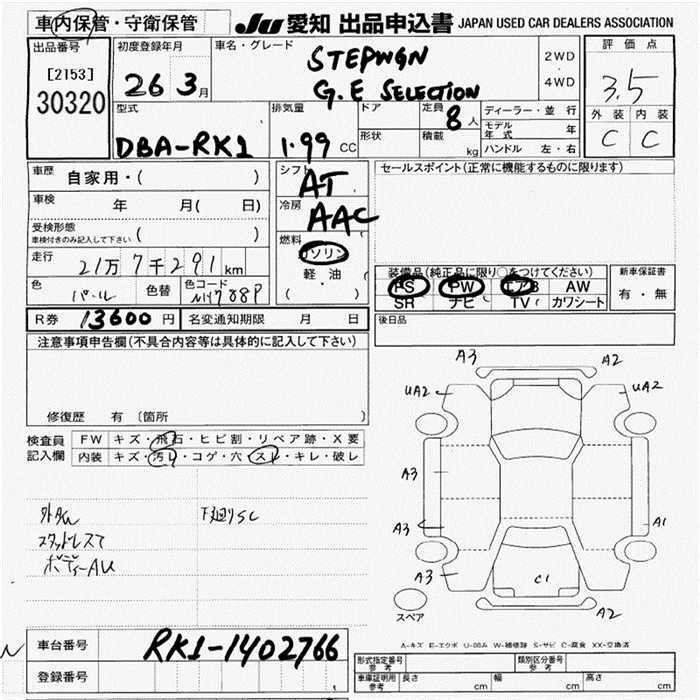 車内保管・守衛保管 JU 愛知 出品申込書 JAPAN USED CAR DEALERS ASSOCIATION
出品番号 初度登録年月 車名・グレード 評価点
[2153] 26年3月 STEPWGN 2WD 3.5
30320 G.E SELECTION 4WD
型式 排気量 ドア 定員 8人 ディーラー・並行 外装 内装
モデル年式 年 C C
DBA-RK1 1.99 CC 形状 積載 kg ハンドル 左・右
車歴 自家用・( ) シフト AT セールスポイント(正常に機能するものに限ります)
車検 年 月( 日) 冷房 AAC
受検形態 ( )
車検付きのみ記入して下さい
燃料 ガソリン
走行 21万7千291km 軽・油 装備品(純正品に限り○をつけてください) 新車保証書
色 パール 色替 色コード NH788P ( ) PS PW エアB AW 有・無
SR ナビ TV カワシート
R券 13600円 名変通知期限 月 日 後日品
注意事項申告欄(不具合内容等は具体的に記入して下さい)
A3 A2
UA2 UA2
修復歴 有 〔箇所 〕
検査員 FW キズ・飛石・ヒビ割・リペア跡・X要
記入欄 内装 キズ・汚レ・コゲ・穴・スレ・キレ・破レ
A3
外ダメ 下廻りSC A3 A1
スタッドレス
ボディーAU A3 C1
スペア A2
A-キズ E-エクボ U-凹み W-補修跡 S-サビ C-腐食 XX-交換済
車台番号 RK1-1402766
登録番号 形式指定番号 参考 類別区分番号 参考
車庫証明用 参考 長さ cm 幅 cm 高さ cm